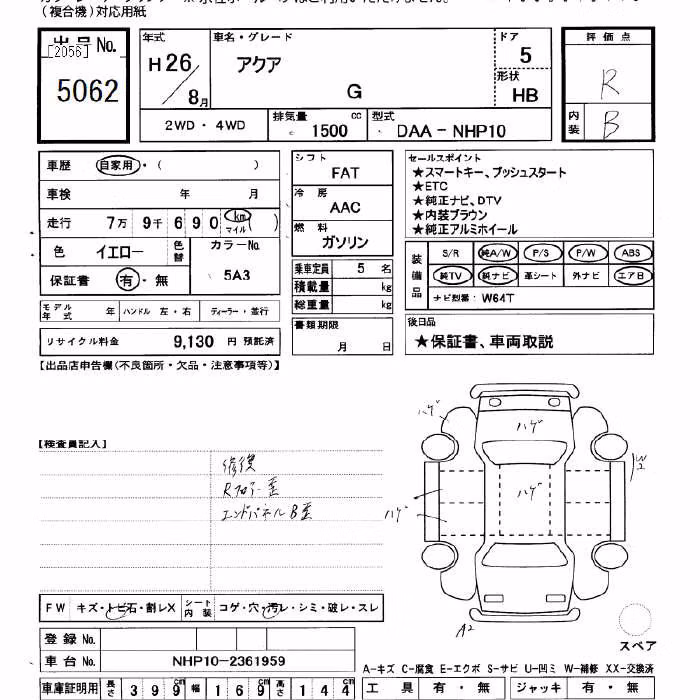 (複合機)対応用紙
出品No.
[2056]
5062
年式
H26/8月
車名・グレード
アクア
G
ドア
5
形状
HB
2WD・4WD
排気量
1500 cc
型式
DAA-NHP10
評価点
R
内装
B
車歴 自家用・( )
車検 年 月
走行 7万 9千 6 9 0 km マイル ( )
色 イエロー 色替
カラーNo.
5A3
保証書 有・無
モデル年式 年 ハンドル 左・右 ディーラー・並行
リサイクル料金 9,130 円 預託済
シフト
FAT
冷房
AAC
燃料
ガソリン
乗車定員 5 名
積載量 kg
総重量 kg
書類期限
月 日
セールスポイント
★スマートキー、プッシュスタート
★ETC
★純正ナビ、DTV
★内装ブラウン
★純正アルミホイール
装備品
S/R 純A/W P/S P/W ABS
純TV 純ナビ 革シート 外ナビ エアB
ナビ型番: W64T
後日品
★保証書、車両取説
【出品店申告欄(不良箇所・欠品・注意事項等)】
【検査員記入】
修復
Rフロアー歪
エンドパネルB歪
ハゲ
ハゲ
ハゲ
ハゲ
W2
A2
スペア
FW キズ・トビ石・割レX シート内装 コゲ・穴・汚レ・シミ・破レ・スレ
登録No.
車台No. NHP10-2361959
車庫証明用 長さ 399cm 幅 169cm 高さ 144cm
A-キズ C-腐食 E-エクボ S-サビ U-凹ミ W-補修 XX-交換済
工具 有・無 ジャッキ 有・無